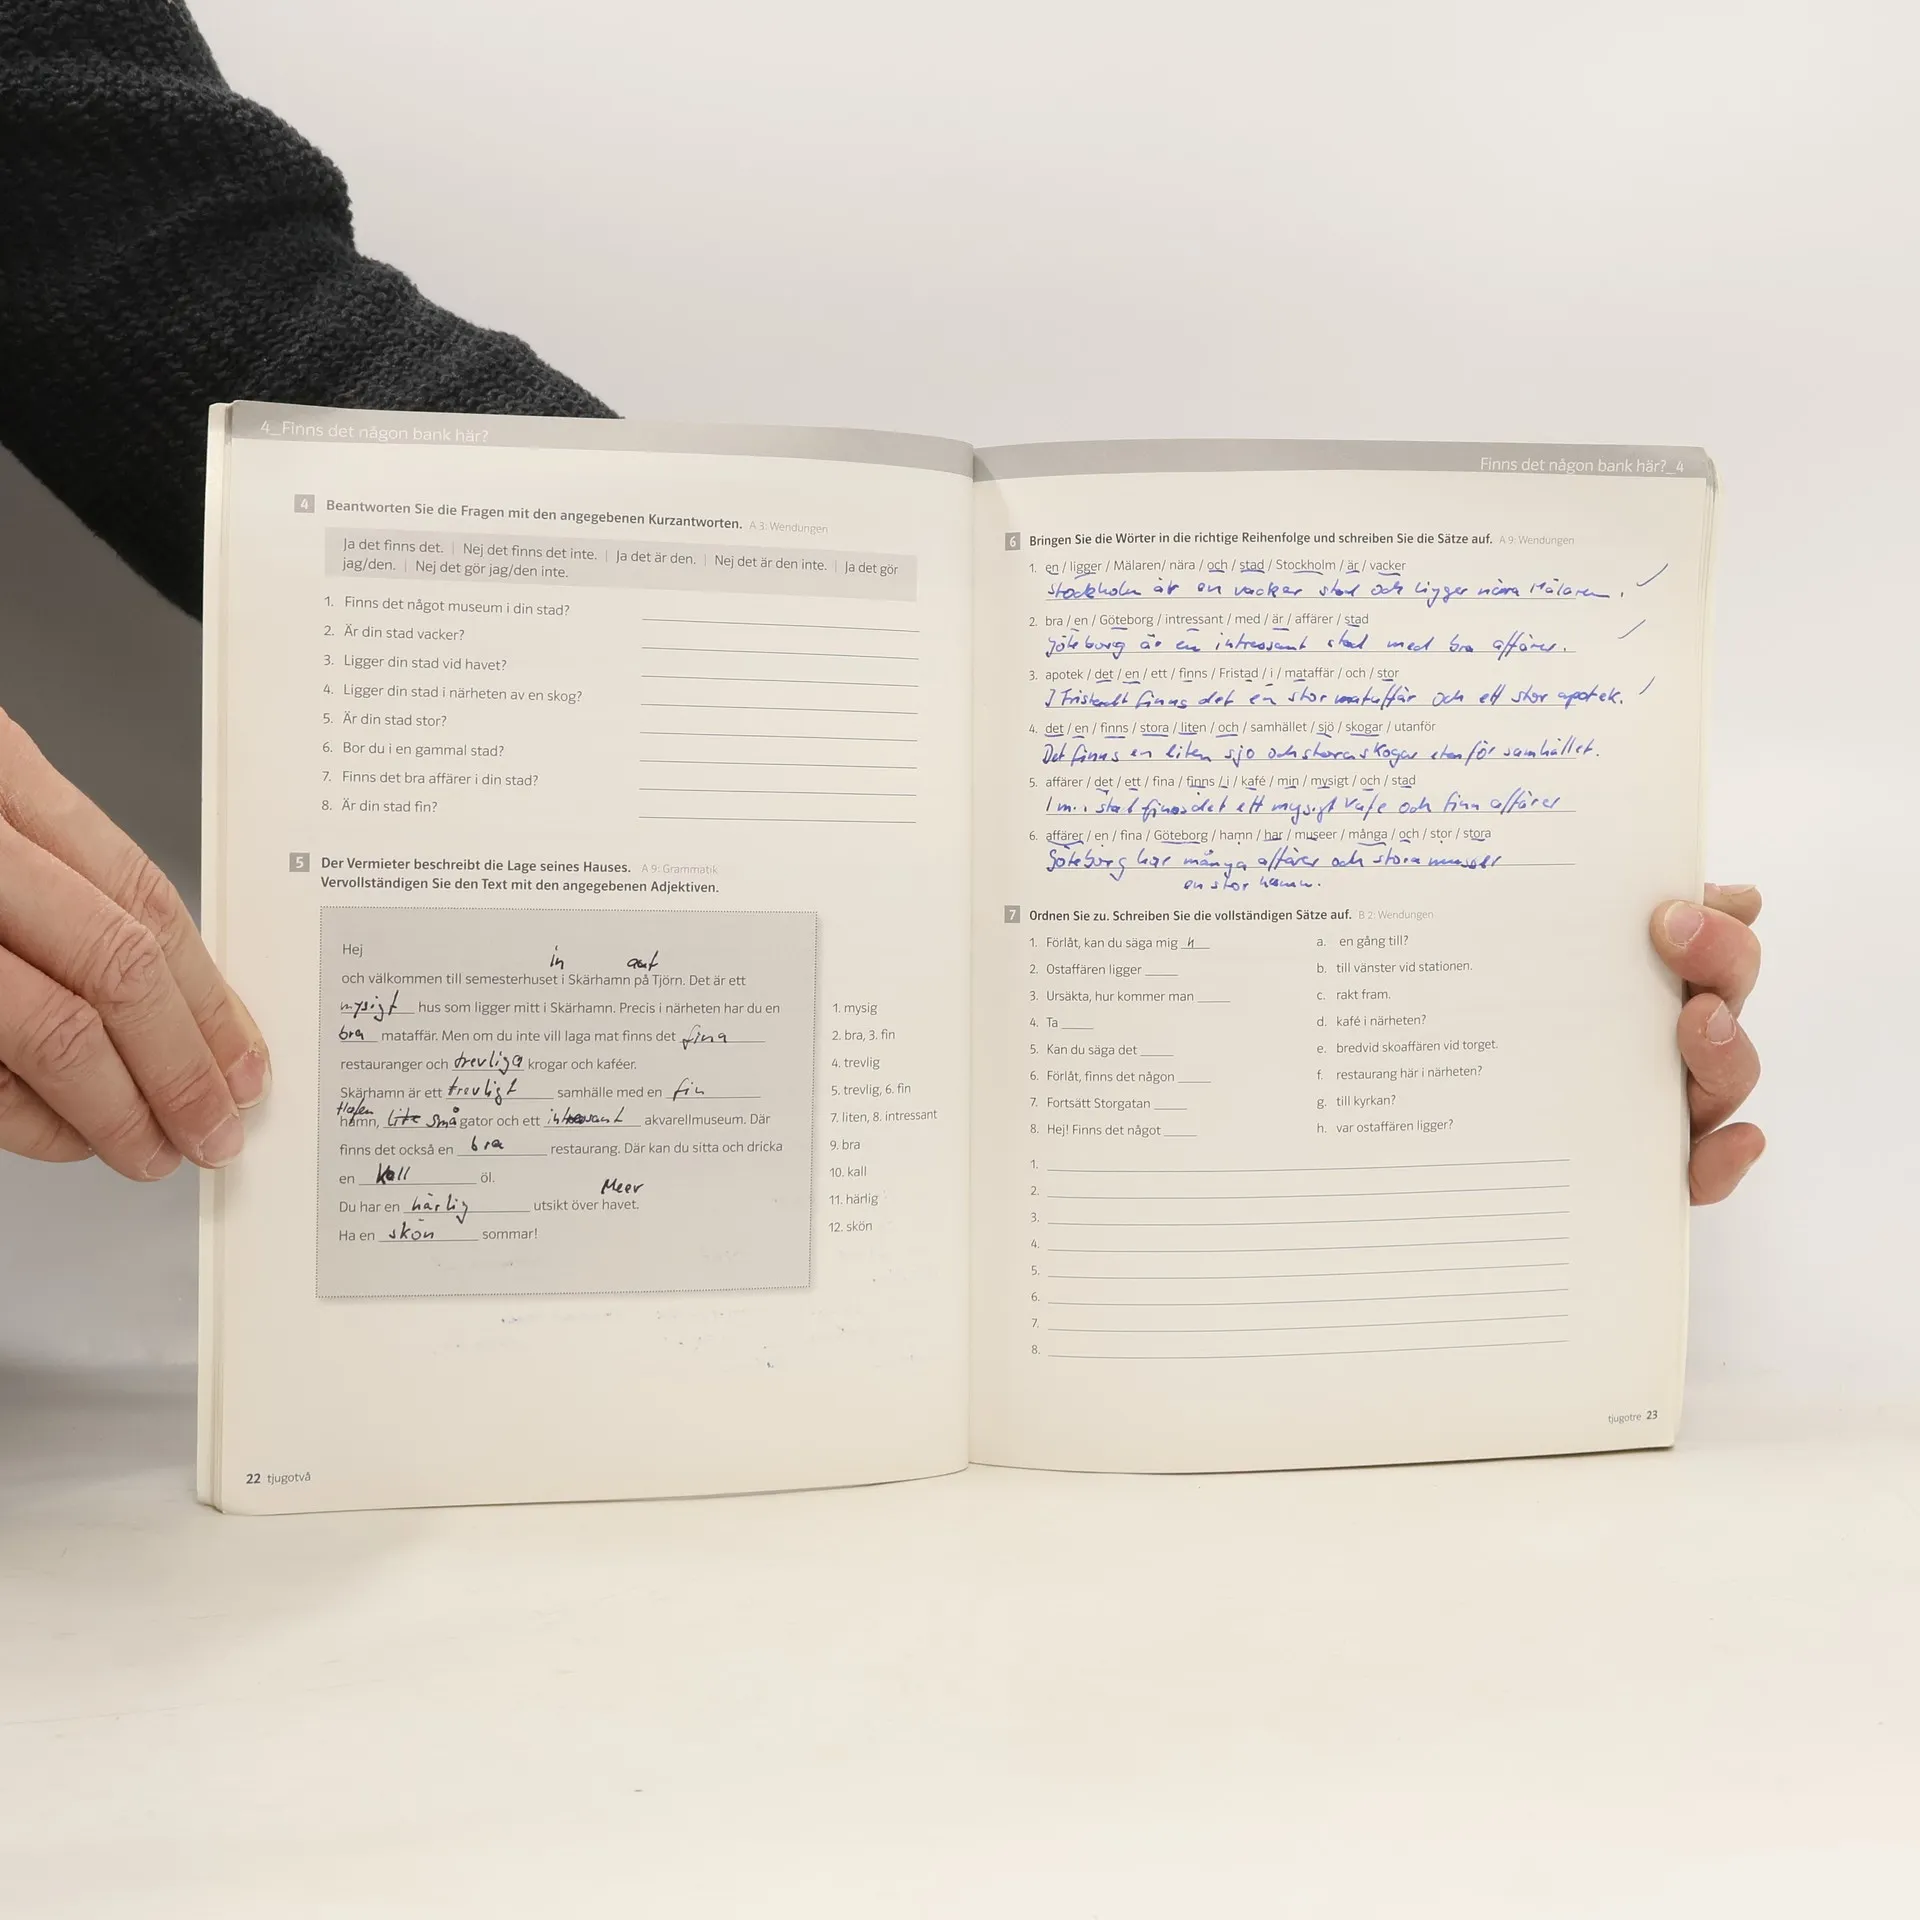 4_Finns det någon bank här?
4 Beantworten Sie die Fragen mit den angegebenen Kurzantworten. A 3: Wendungen
Ja det finns det. | Nej det finns det inte. | Ja det är den. | Nej det är den inte. | Ja det gör
jag/den. | Nej det gör jag/den inte.
1. Finns det något museum i din stad?
2. Är din stad vacker?
3. Ligger din stad vid havet?
4. Ligger din stad i närheten av en skog?
5. Är din stad stor?
6. Bor du i en gammal stad?
7. Finns det bra affärer i din stad?
8. Är din stad fin?
5 Der Vermieter beschreibt die Lage seines Hauses. A 9: Grammatik
Vervollständigen Sie den Text mit den angegebenen Adjektiven.
Hej
in auf
och välkommen till semesterhuset i Skärhamn på Tjörn. Det är ett
mysigt hus som ligger mitt i Skärhamn. Precis i närheten har du en
bra mataffär. Men om du inte vill laga mat finns det fina
restauranger och trevliga krogar och kaféer.
Skärhamn är ett trevligt samhälle med en fin
Hafen
hamn, små gator och ett intressant akvarellmuseum. Där
finns det också en bra restaurang. Där kan du sitta och dricka
en kall öl.
Meer
Du har en härlig utsikt över havet.
Ha en skön sommar!
1. mysig
2. bra, 3. fin
4. trevlig
5. trevlig, 6. fin
7. liten, 8. intressant
9. bra
10. kall
11. härlig
12. skön
22 tjugotvå
Finns det någon bank här?_4
6 Bringen Sie die Wörter in die richtige Reihenfolge und schreiben Sie die Sätze auf. A 9: Wendungen
1. en / ligger / Mälaren/ nära / och / stad / Stockholm / är / vacker
Stockholm är en vacker stad och ligger nära Mälaren.
2. bra / en / Göteborg / intressant / med / är / affärer / stad
Göteborg är en intressant stad med bra affärer.
3. apotek / det / en / ett / finns / Fristad / i / mataffär / och / stor
I finns det en stor mataffär och ett stor apotek.
4. det / en / finns / stora / liten / och / samhället / sjö / skogar / utanför
Det finns en liten sjö och stora skogar samhället.
5. affärer / det / ett / fina / finns / i / kafé / min / mysigt / och / stad
I min stad finns det ett mysigt kafe och fina affärer
6. affärer / en / fina / Göteborg / hamn / har / museer / många / och / stor / stora
Göteborg har många affärer och stora museer
en stor hamn.
7 Ordnen Sie zu. Schreiben Sie die vollständigen Sätze auf. B 2: Wendungen
1. Förlåt, kan du säga mig h
2. Ostaffären ligger
3. Ursäkta, hur kommer man
4. Ta
5. Kan du säga det
6. Förlåt, finns det någon
7. Fortsätt Storgatan
8. Hej! Finns det något
a. en gång till?
b. till vänster vid stationen.
c. rakt fram.
d. kafé i närheten?
e. bredvid skoaffären vid torget.
f. restaurang här i närheten?
g. till kyrkan?
h. var ostaffären ligger?
1.
2.
3.
4.
5.
6.
7.
8.
tjugotre 23